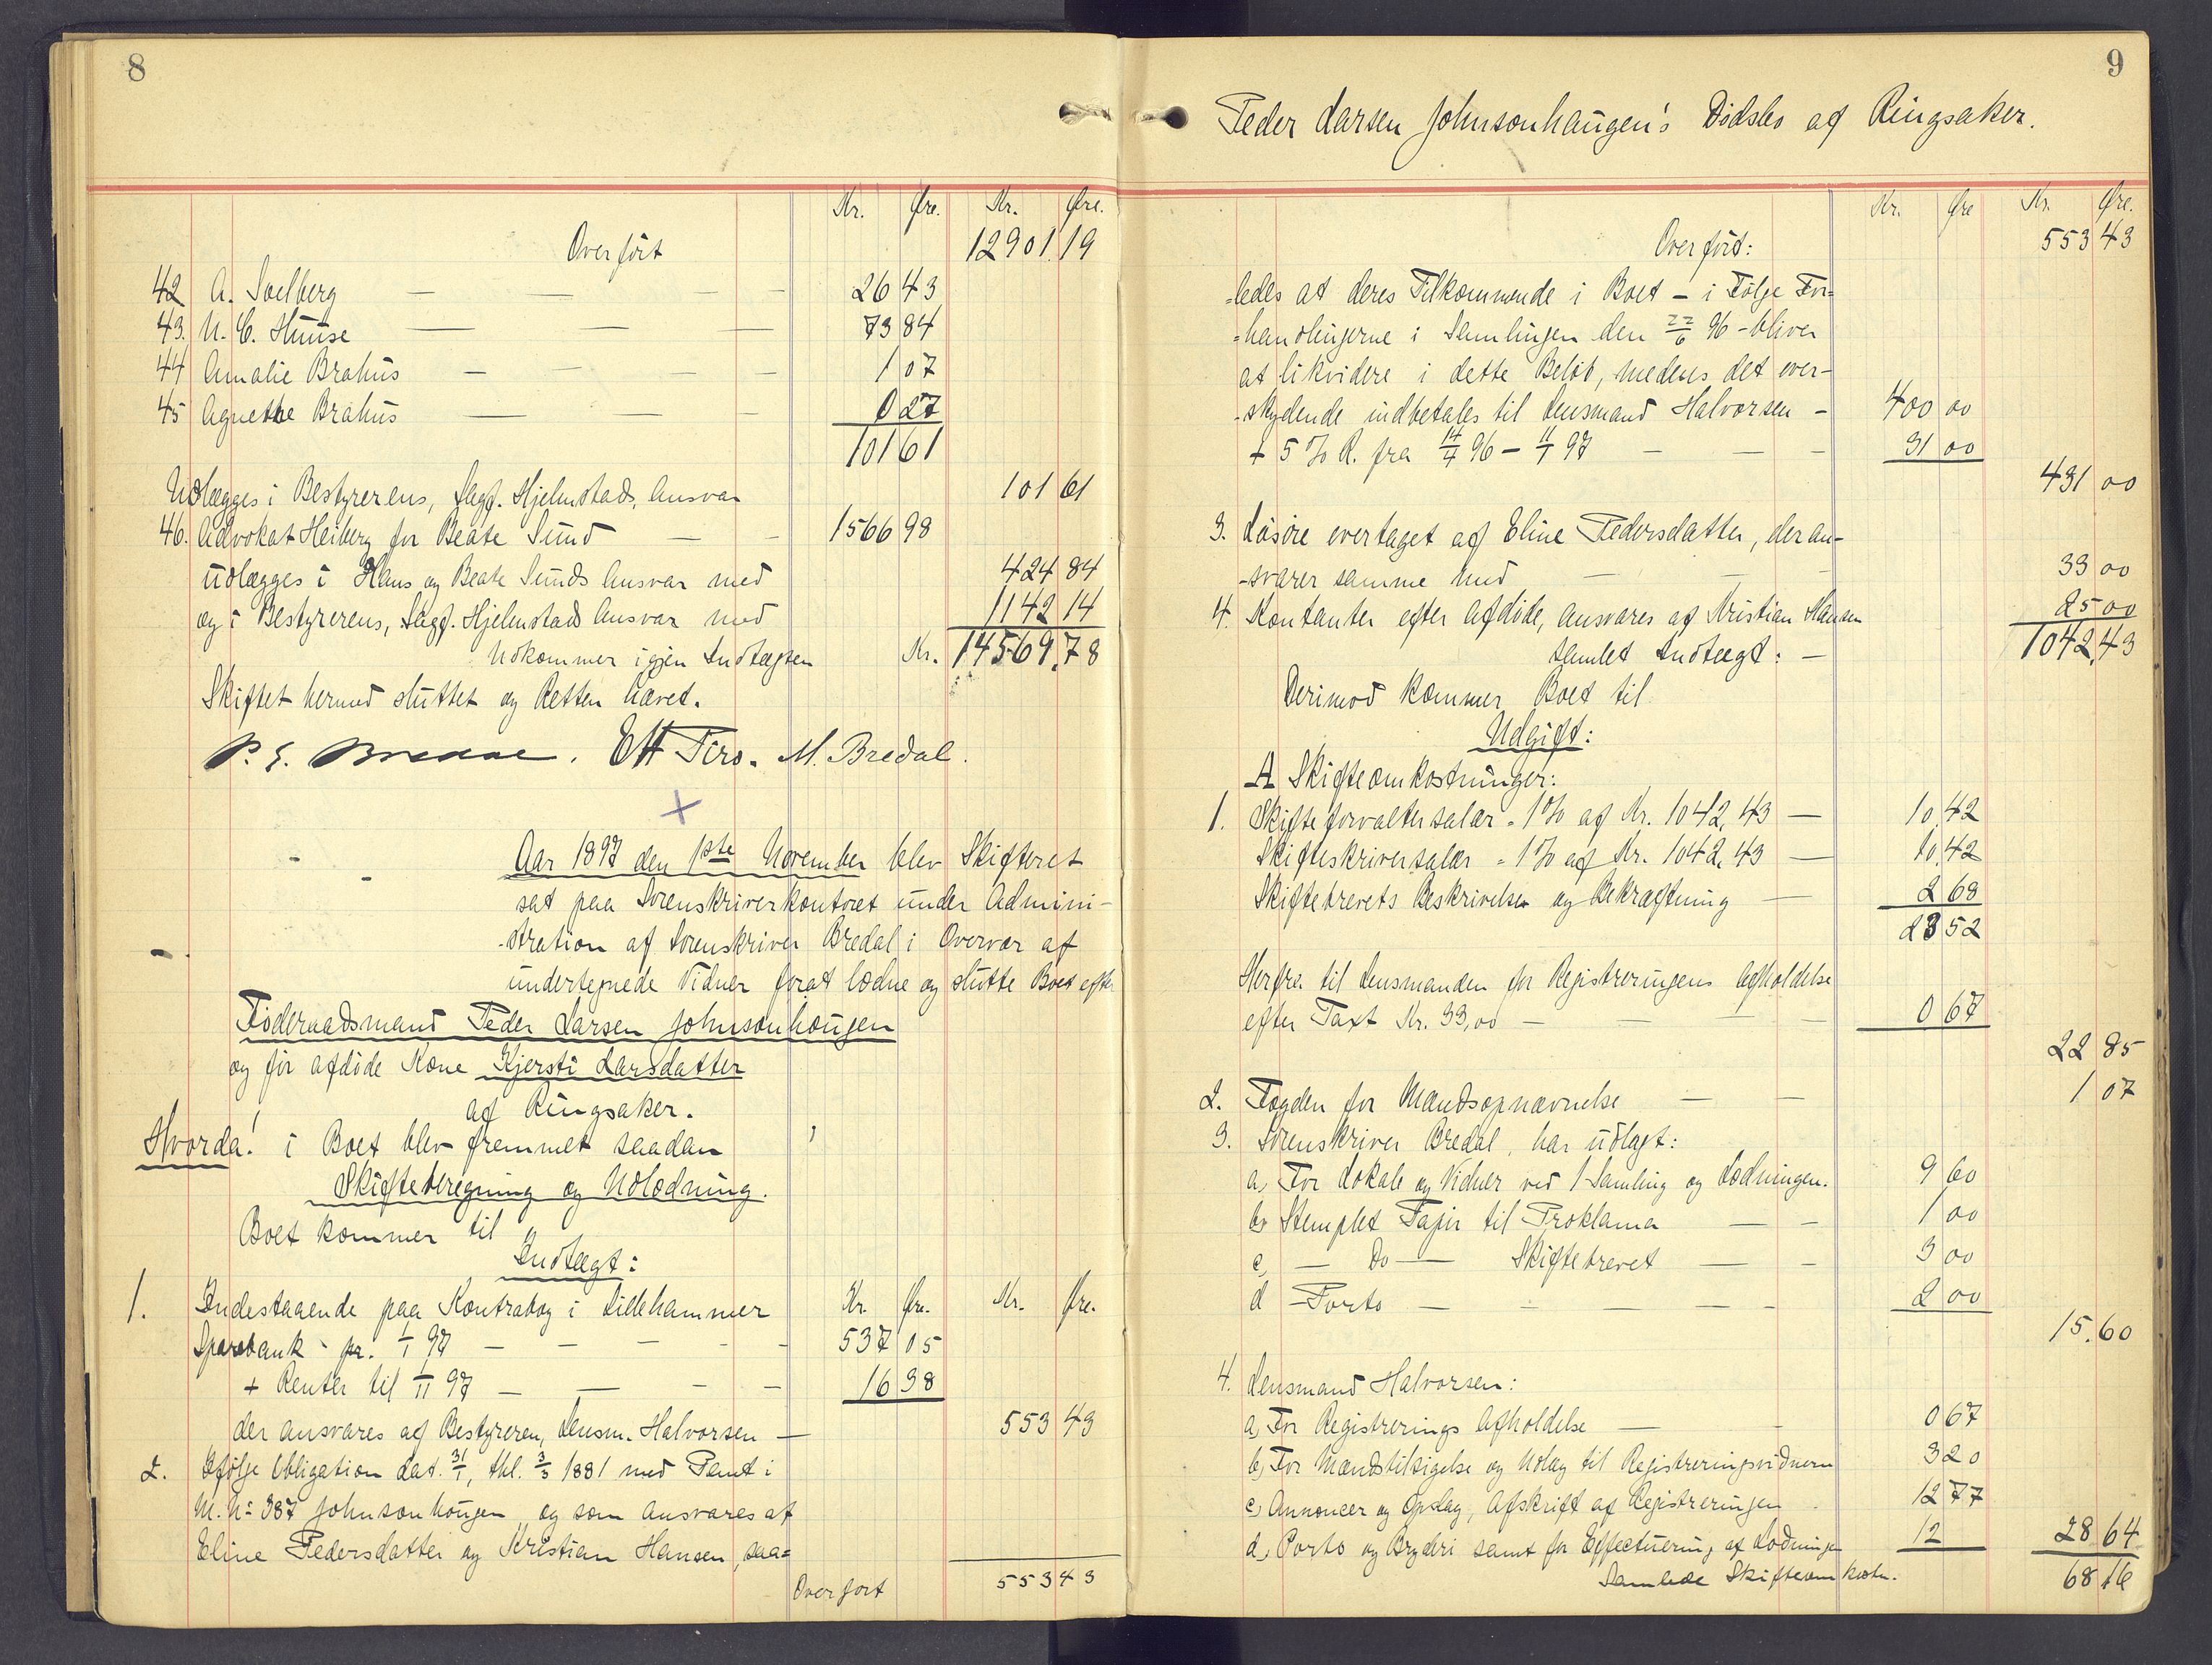 8
Kr. Øre. Kr. Øre.
Overført 12901 19
42 A. Soelberg — — — 26 43
43. N. C. Huuse — — — 73 84
44 Amalie Brahus — — — 1 07
45 Agnethe Brahus — — — 0 27
101 61
Udlægges i Bestyrerens, Sagf. Hjelmstads, Ansvar 101 61
46. Advokat Heiberg for Beate Sund — — 1566 98
udlægges i Hans og Beate Sunds Ansvar med 424 84
og i Bestyrerens, Sagf. Hjelmstads Ansvar med 1142 14
Udkommer igjen Indtægten Kr. 14569.78
Skiftet hermed sluttet og Retten hævet.
M. Bredal.
Aar 1897 den 1ste November blev Skifteret
sat paa Sorenskriverkontoret under Admini-
-stration af Sorenskriver Bredal i Overvær af
undertegnede Vidner forat lodne og slutte Boet efter
Føderaadsmand Peder Larsen Johnsonhougen
og før afdøde Kone Kjersti Larsdatter
af Ringsaker.
Hvorda! i Boet blev fremmet saadan
Skifteberegning og Udlodning.
Boet kommer til
Indtægt:
1. Indestaaende paa Kontrabog i Lillehammer Kr. Øre. Kr. Øre.
Sparebank pr. 1/1 97 — — — — 537 05
+ Renter til 1/11 97 — — — — 16 38
der ansvares af Bestyreren, Lensm. Halvorsen — 553 43
2. Ifølge Obligation dat. 31/1, thl. 3/3 1881 med Pant i
M. No 387 Johnsonhougen, og som ansvares af
Eline Pedersdatter og Kristian Hansen, saa=
Overført 553 43
9
Peder Larsen Johnsonhaugen's Dødsbo af Ringsaker.
Kr. Øre Kr. Øre.
Overført: 553 43
=ledes at deres Tilkommende i Boet — i Følge For=
=handlingerne i Samlingen den 22/6 96 - bliver
at likvidere i dette Beløb, medens det over-
-skydende indbetales til Lensmand Halvorsen - 400 00
+ 5 % R. fra 14/4 96 — 1/11 97 — — — 31 00
431 00
3. Løsøre overtaget af Eline Pedersdatter, der an-
-svarer samme med — — — 33 00
4. Kontanter efter Afdøde, ansvares af Kristian Hansen 25 00
Samlet Indtægt: — 1042,43
Derimod kommer Boet til
Udgift:
A Skifteomkostninger:
1. Skifteforvaltersalær = 1% af Kr. 1042,43 — 10,42
Skifteskriversalær = 1% af Kr. 1042,43 — 10,42
Skiftebrevets Beskrivelse og Bekræftning — 2 68
23 52
Herfra til Lensmanden for Registreringens Afholdelse
efter Taxt Kr. 33,00 — — — — 0 67
22 85
2. Fogden for Mandsopnævnelse — — 1 07
3. Sorenskriver Bredal, har udlagt:
a, For Lokale og Vidner ved 1 Samling og Lodningen. 9 60
b, Stemplet Papir til Proklama — — 1 00
c, — Do — Skiftebrevet — — 3 00
d Porto — — — — — 2 00
15,60
4. Lensmand Halvorsen:
a, For Registrerings Afholdelse — — 0 67
b, For Mandstilsigelse og Udlæg til Registreringsvidnerne 3 20
c, Annoncer og Opslag, Afskrift af Registreringen 12 77
d, Porto og Bryderi samt for Effectuering af Lodningen 12 28 64
Samlede Skifteomkostn. 68 16